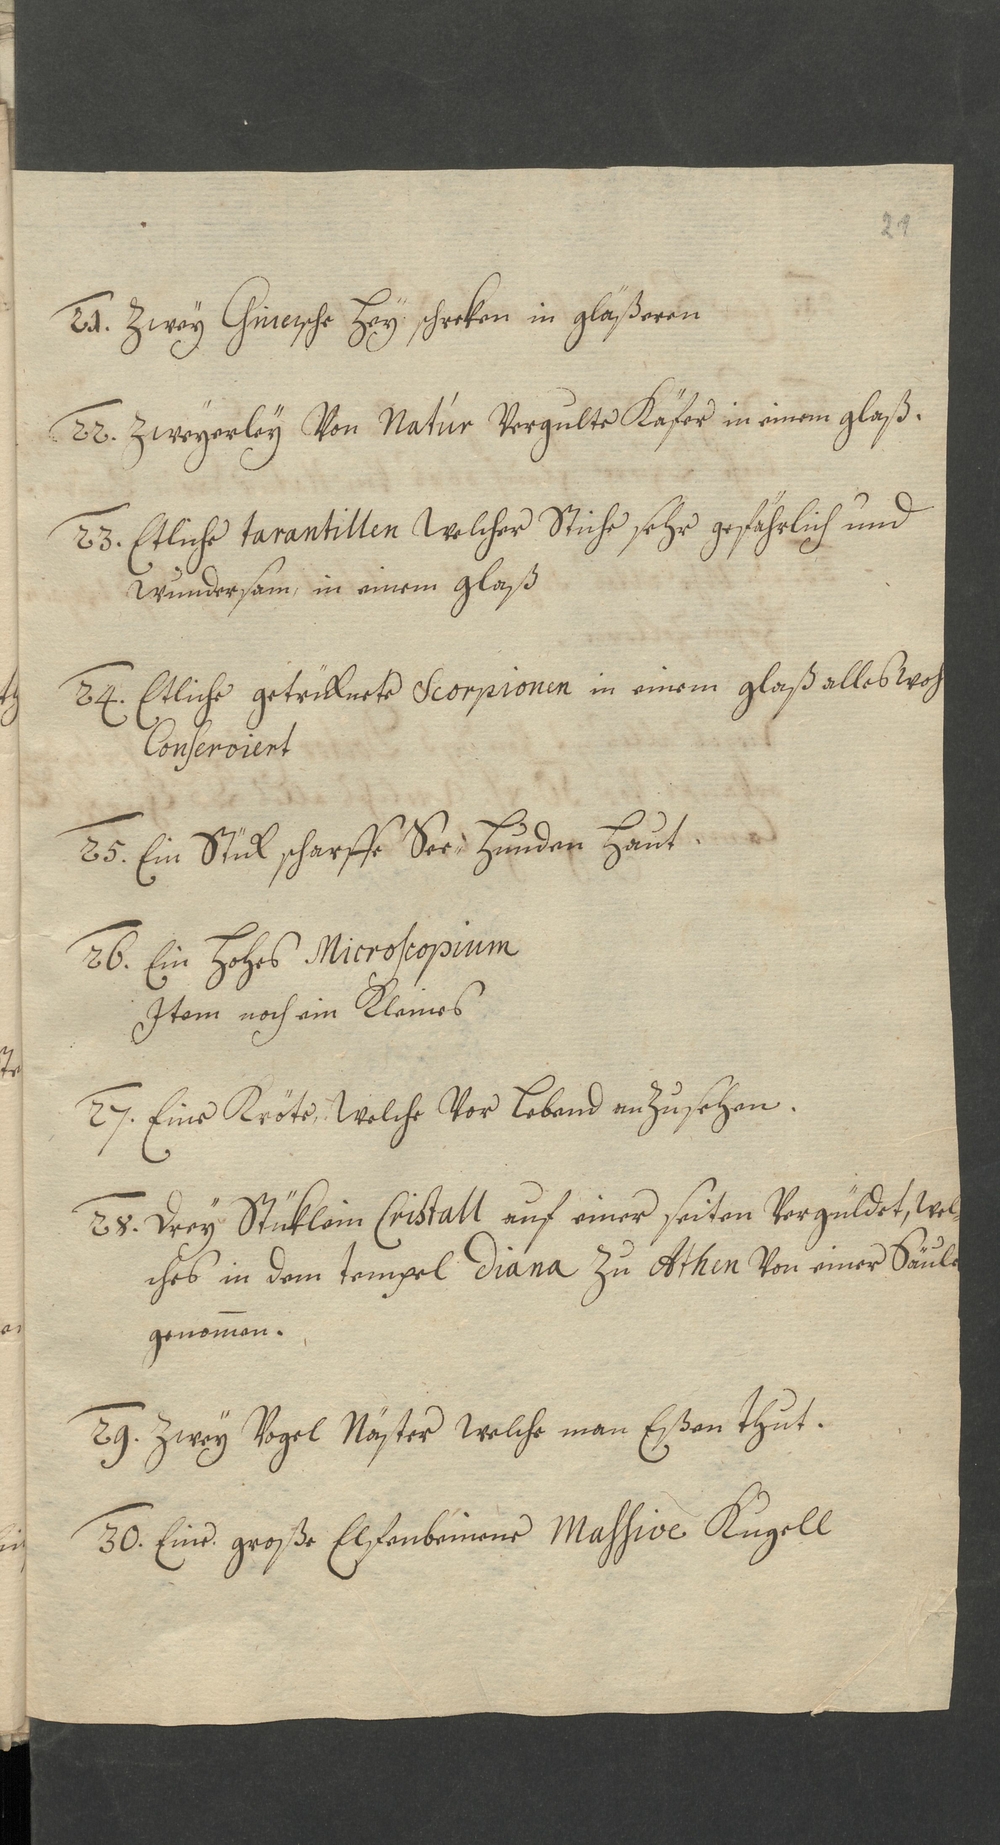 21
21. Zweÿ Chinesche Heÿ schreken in gläßeren
22. Zweÿerleÿ Von Natúr Vergulte Käfer in einem glaß.
23. Etliche tarantillen Welcher Stiche sehr gefährlich und
wundersam, in einem glaß
24. Etliche getrüknete Scorpionen in einem glaß alles woh
Conserviert
25. Ein Stük scharffe See-Hunden Haut.
26. Ein Hohes Microscopium
Item noch ein Kleines
27. Eine Kröte, Welche Vor Lebend anzusehen.
28. Dreÿ Stüklein Cristall auf einer seiten Vergüldet, Wel-
ches in dem tempel Diana Zu Athen Von einer Säule
genom̄en.
29. Zweÿ Vogel Näster welche man Eßen thut.
30. Eine große Elfenbeinene Massive Kugell